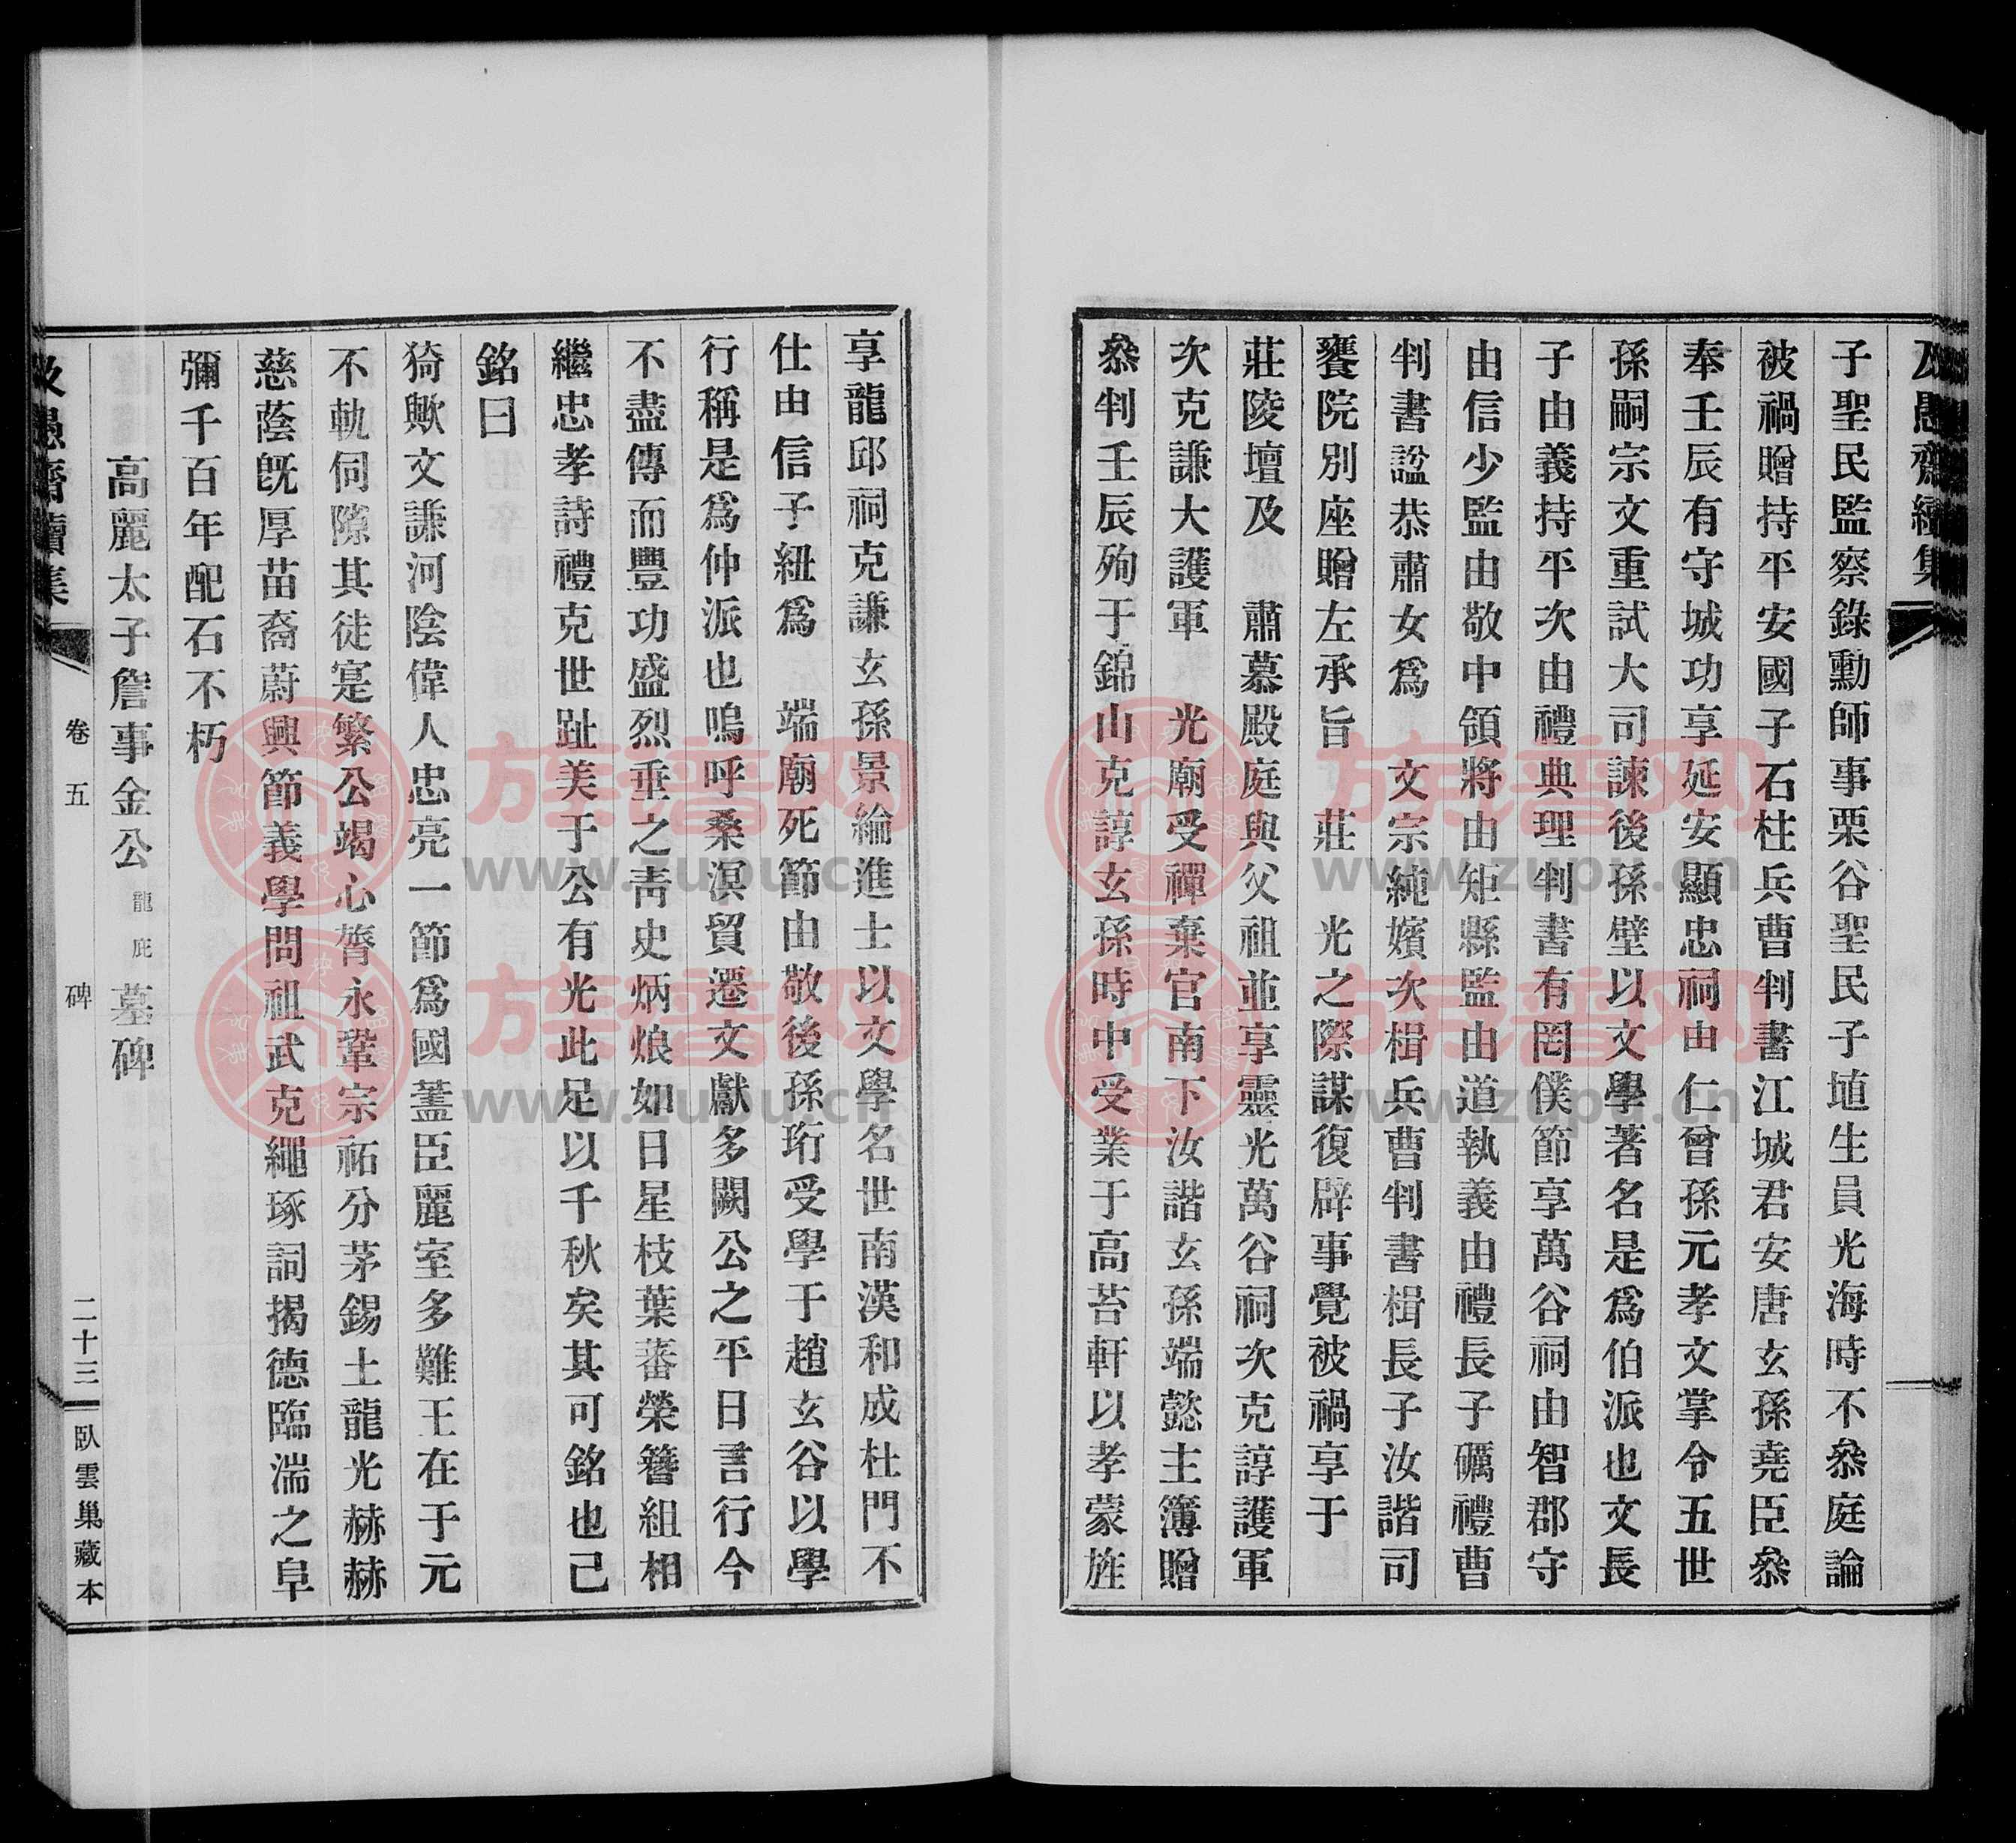 子聖民監察錄勳師事栗谷聖民子埴生員光海時不叅庭論
被禍贈持平安國子石柱兵曹判書江城君安唐玄孫堯臣叅
奉壬辰有守城功享延安顯忠祠由仁曾孫元孝文掌令五世
孫嗣宗文重試大司諫後孫壁以文學著名是爲伯派也文長
子由義持平次由禮典理判書有罔僕節享萬谷祠由智郡守
由信少監由敬中領將由矩縣監由道執義由禮長子礪禮曹
判書諡恭肅女爲 文宗純嬪次楫兵曹判書楫長子汝諧司
饔院別座贈左承旨 莊 光之際謀復辟事覺被禍享于
莊陵壇及 肅慕殿庭與父祖並享靈光萬谷祠次克諄護軍
次克謙大護軍 光廟受禪棄官南下汝諧玄孫端懿主簿贈
叅判壬辰殉于錦山克諄玄孫時中受業于高苔軒以孝蒙旌
享龍邱祠克謙玄孫景綸進士以文學名世南漢和成杜門不
仕由信子紐爲 端廟死節由敬後孫珩受學于趙玄谷以學
行稱是爲仲派也嗚呼桑溟貿遷文獻多闕公之平日言行今
不盡傳而豐功盛烈垂之靑史炳烺如日星枝葉蕃榮簪組相
繼忠孝詩禮克世趾美于公有光此足以千秋矣其可銘也已
銘曰
猗歟文謙河陰偉人忠亮一節爲國藎臣麗室多難王在于元
不軌伺隙其徒寔繁公竭心膂永鞏宗祏分茅錫土龍光赫赫
慈蔭旣厚苗裔蔚興節義學問祖武克繩琢詞揭德臨湍之阜
彌千百年配石不朽
高麗太子詹事金公龍庇墓碑
卷五 碑 二十三 臥雲巢藏本
族谱网
www.zupu.cn
族谱网
www.zupu.cn
族谱网
www.zupu.cn
族谱网
www.zupu.cn